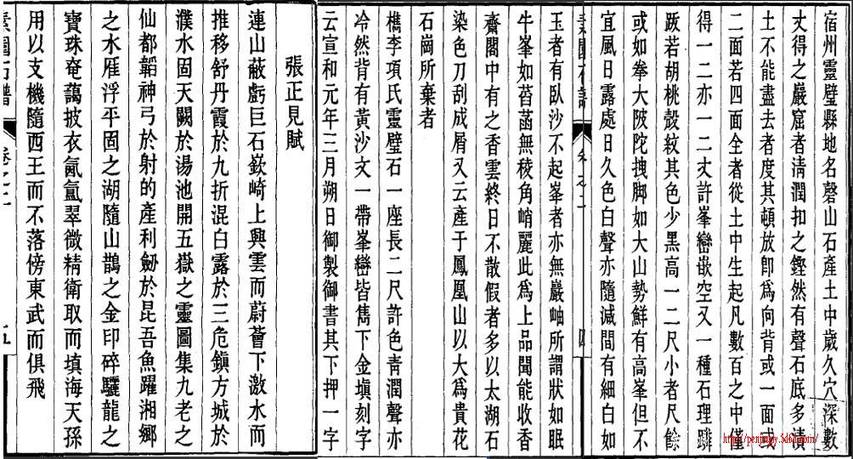 宿州靈璧縣地名磬山石產土中歲久穴深數
丈得之巖窟者清潤扣之鏗然有聲石底多漬
土不能盡去者度其頓放卽為向背或一面或
二面若四面全者從土中生起凡數百之中僅
得一二亦一二丈許峯巒嵌空又一種石理踈
跛若胡桃殼紋其色少黑高一二尺小者尺餘
或如拳大陂陀拽脚如大山勢鮮有高峯但不
宜風日露處日久色白聲亦隨減間有細白如
玉者有臥沙不起峯者亦無巖岫所謂狀如眠
牛峯如菡萏無稜角峭麗此為上品聞能收香
齋閣中有之香雲終日不散假者多以太湖石
染色刀刮成屑又云產于鳳凰山以大為貴花
石崗所棄者
檇李項氏靈璧石一座長二尺許色青潤聲亦
冷然背有黃沙文一帶峯巒皆雋下金塡刻字
云宣和元年三月朔日御製御書其下押一字
張正見賦
連山蔽虧巨石嶔崎上興雲而蔚薈下激水而
推移舒丹霞於九折混白露於三危鎭方城於
濮水固天闕於湯池開五嶽之靈圖集九老之
仙都韜神弓於射的產利劒於昆吾魚躍湘鄉
之水雁浮平固之湖隨山鵲之金印碎驪龍之
寶珠奄藹披衣氤氳翠微精衛取而塡海天孫
用以支機隨西王而不落傍東武而俱飛
素園石譜 卷之二 四
素園石譜 卷之二 五